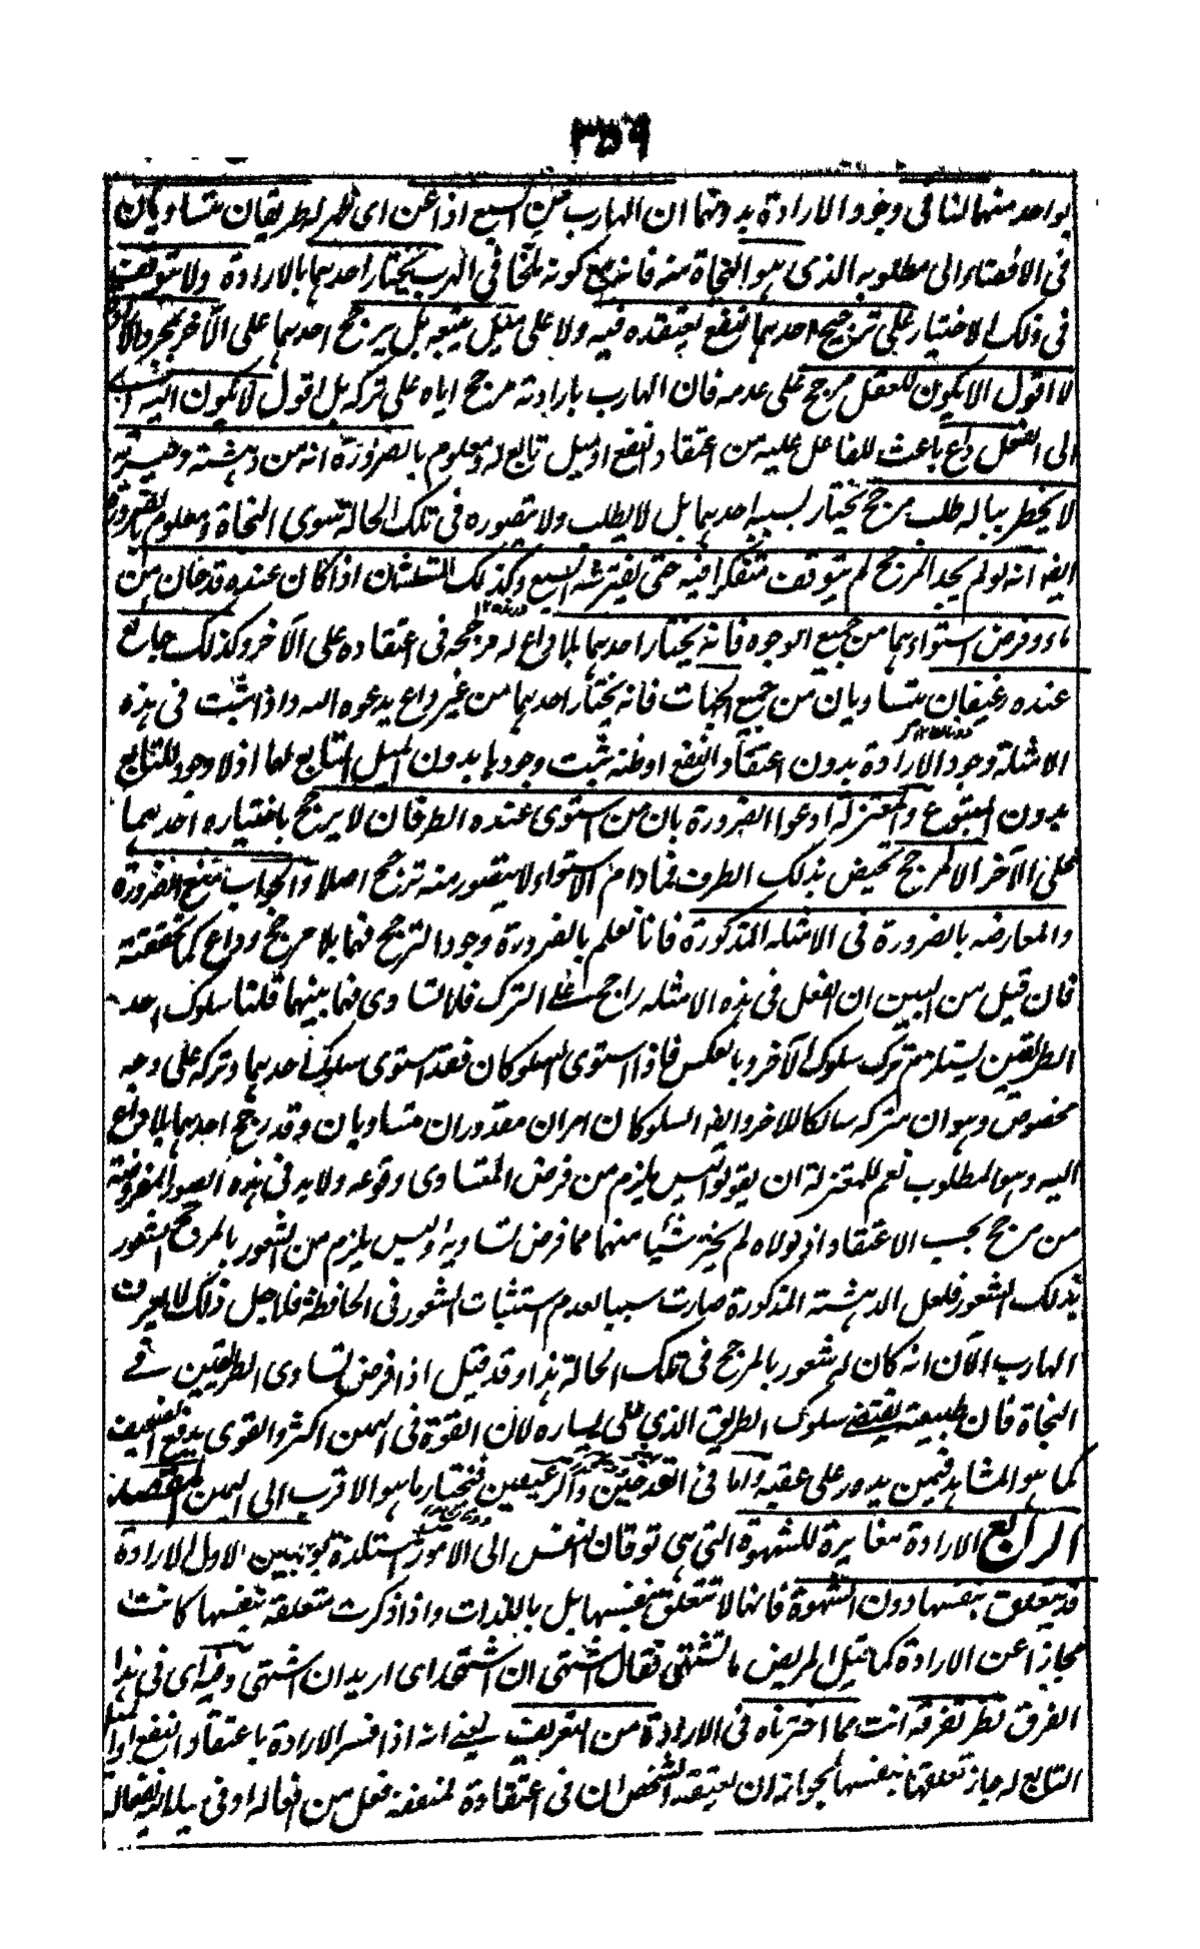 ٣٥٦
بواحد منهما لنا فى وجود الارادة بدونهما ان الهارب من السبع اذا عن اى ظهر له طريقان متساويان
فى الافضاء الى مطلوبه الذى هو النجاة منه فانه مع كونه ملجأ فى الهرب يختار احدهما بالارادة ولا يتوقف
فى ذلك الاختيار على ترجيح احدهما لنفع يعتقده فيه ولا على ميل يتبعه بل يرجح احدهما على الآخر بمجرد الارادة
لا اقول لا يكون للفعل مرجح على عدمه فان الهارب بارادته مرجح اياه على تركه بل اقول لا يكون اليه اى
الى الفعل داع باعث للفاعل عليه من اعتقاد النفع او ميل تابع له ومعلوم بالضرورة انه من دهشته وحيرته
لا يخطر بباله طلب مرجح يختار بسببه احدهما بل لا يطلب ولا يتصور فى تلك الحالة سوى النجاة ومعلوم بالضرورة
ايضا انه لو لم يجد المرجح لم يتوقف متفكرا فيه حتى يفترشه السبع وكذلك العطشان اذا كان عنده قدحان من
ماء وفرض استواءهما من جميع الوجوه فانه يختار احدهما بلا داع له مرجحه فى اعتقاده على الآخر وكذلك جائع
عنده رغيفان متساويان من جميع الجهات فانه يختار احدهما من غير داع يدعوه اليه واذا ثبت فى هذه
الامثلة وجود الارادة بدون اعتقاد النفع او ظنه ثبت وجودها بدون الميل التابع لهما اذ لا وجود للتابع
بدون المتبوع والمعتزلة ادعوا الضرورة بان من استوى عنده الطرفان لا يرجح باختياره احدهما
على الآخر الا لمرجح مخصص بذلك الطرف فما دام الاستواء لا يتصور منه ترجيح اصلا والجواب منع الضرورة
والمعارضة بالضرورة فى الامثلة المذكورة فانا نعلم بالضرورة وجود الترجيح فيها بلا مرجح وداع كما تحققته
فان قيل من البين ان الفعل فى هذه الامثلة راجح على الترك فلا تساوى فيما بينهما قلنا سلوك احد
الطريقين يستلزم ترك سلوك الآخر وبالعكس فاذا استوى السلوكان فقد استوى سلوك احدهما وتركه على وجه
مخصوص وهو ان يتركه سالكا للاخر وايضا السلوكان امران مقدوران متساويان وقد رجح احدهما بلا داع
اليه وهو المطلوب نعم للمعتزلة ان يقولوا ليس يلزم من فرض التساوى وقوعه ولا بد فى هذه الصور المفروضة
من مرجح بحسب الاعتقاد اذ لولاه لم يختر شيأ منهما مما فرض تساويه وليس يلزم من الشعور بالمرجح الشعور
بذلك الشعور فلعل الدهشة المذكورة صارت سببا لعدم استثبات الشعور فى الحافظة فلاجل ذلك لا يعرف
الهارب الآن انه كان له شعور بالمرجح فى تلك الحالة هذا وقد قيل اذا فرض تساوى الطريقين فى
النجاة فان طبيعته يقتضى سلوك الطريق الذى على يساره لان القوة فى اليمين اكثر والقوى يدفع الضعيف
كما هو المشاهد فيمن يدور على عقبه واما فى القدحين والرغيفين فيختار ما هو الاقرب الى اليمين المقصد
الرابع الارادة مغايرة للشهوة التى هى توقان النفس الى الامور المستلذة لوجهين الاول الارادة
قد يتعلق بنفسها دون الشهوة فانها لا تتعلق بنفسها بل باللذات واذا ذكرت متعلقة بنفسها كانت
مجازا عن الارادة كما قيل لمريض ما تشتهى فقال اشتهى ان اشتهى اى اريد ان اشتهى وفيه اى فى هذا
الفرق نظر تعرفه انت مما اخترناه فى الارادة من التعريف يعنى انه اذا فسر الارادة باعتقاد النفع او الميل
التابع له جاز تعلقها بنفسها لجواز ان يعتقد الشخص ان فى اعتقاده لمنفعة فعل من افعاله او فى